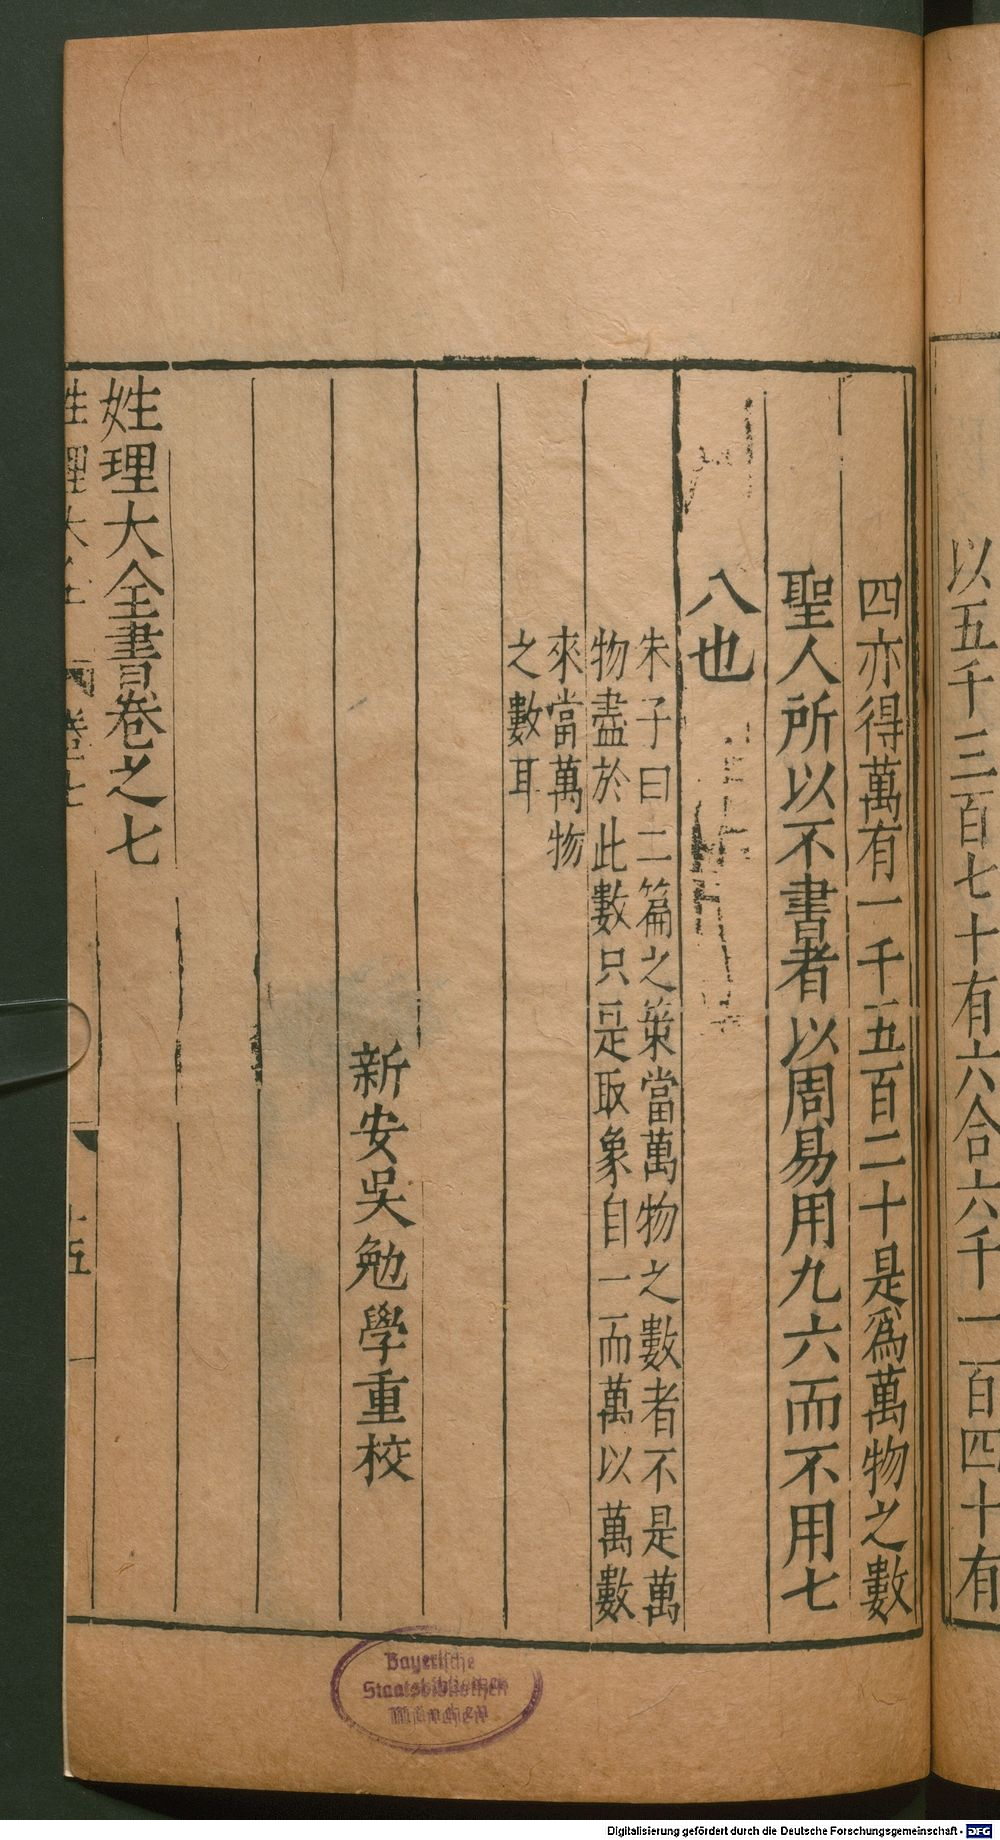 以五千三百七十有六合六千一百四十有
四亦得萬有一千五百二十是爲萬物之數
聖人所以不書者以周易用九六而不用七
八也
朱子曰二篇之策當萬物之數者不是萬
物盡於此數只是取象自一而萬以萬數
來當萬物
之數耳
新安吳勉學重校
姓理大全書卷之七
Bayerische
Staatsbibliothek
München
Digitalisierung gefördert durch die Deutsche Forschungsgemeinschaft - DFG